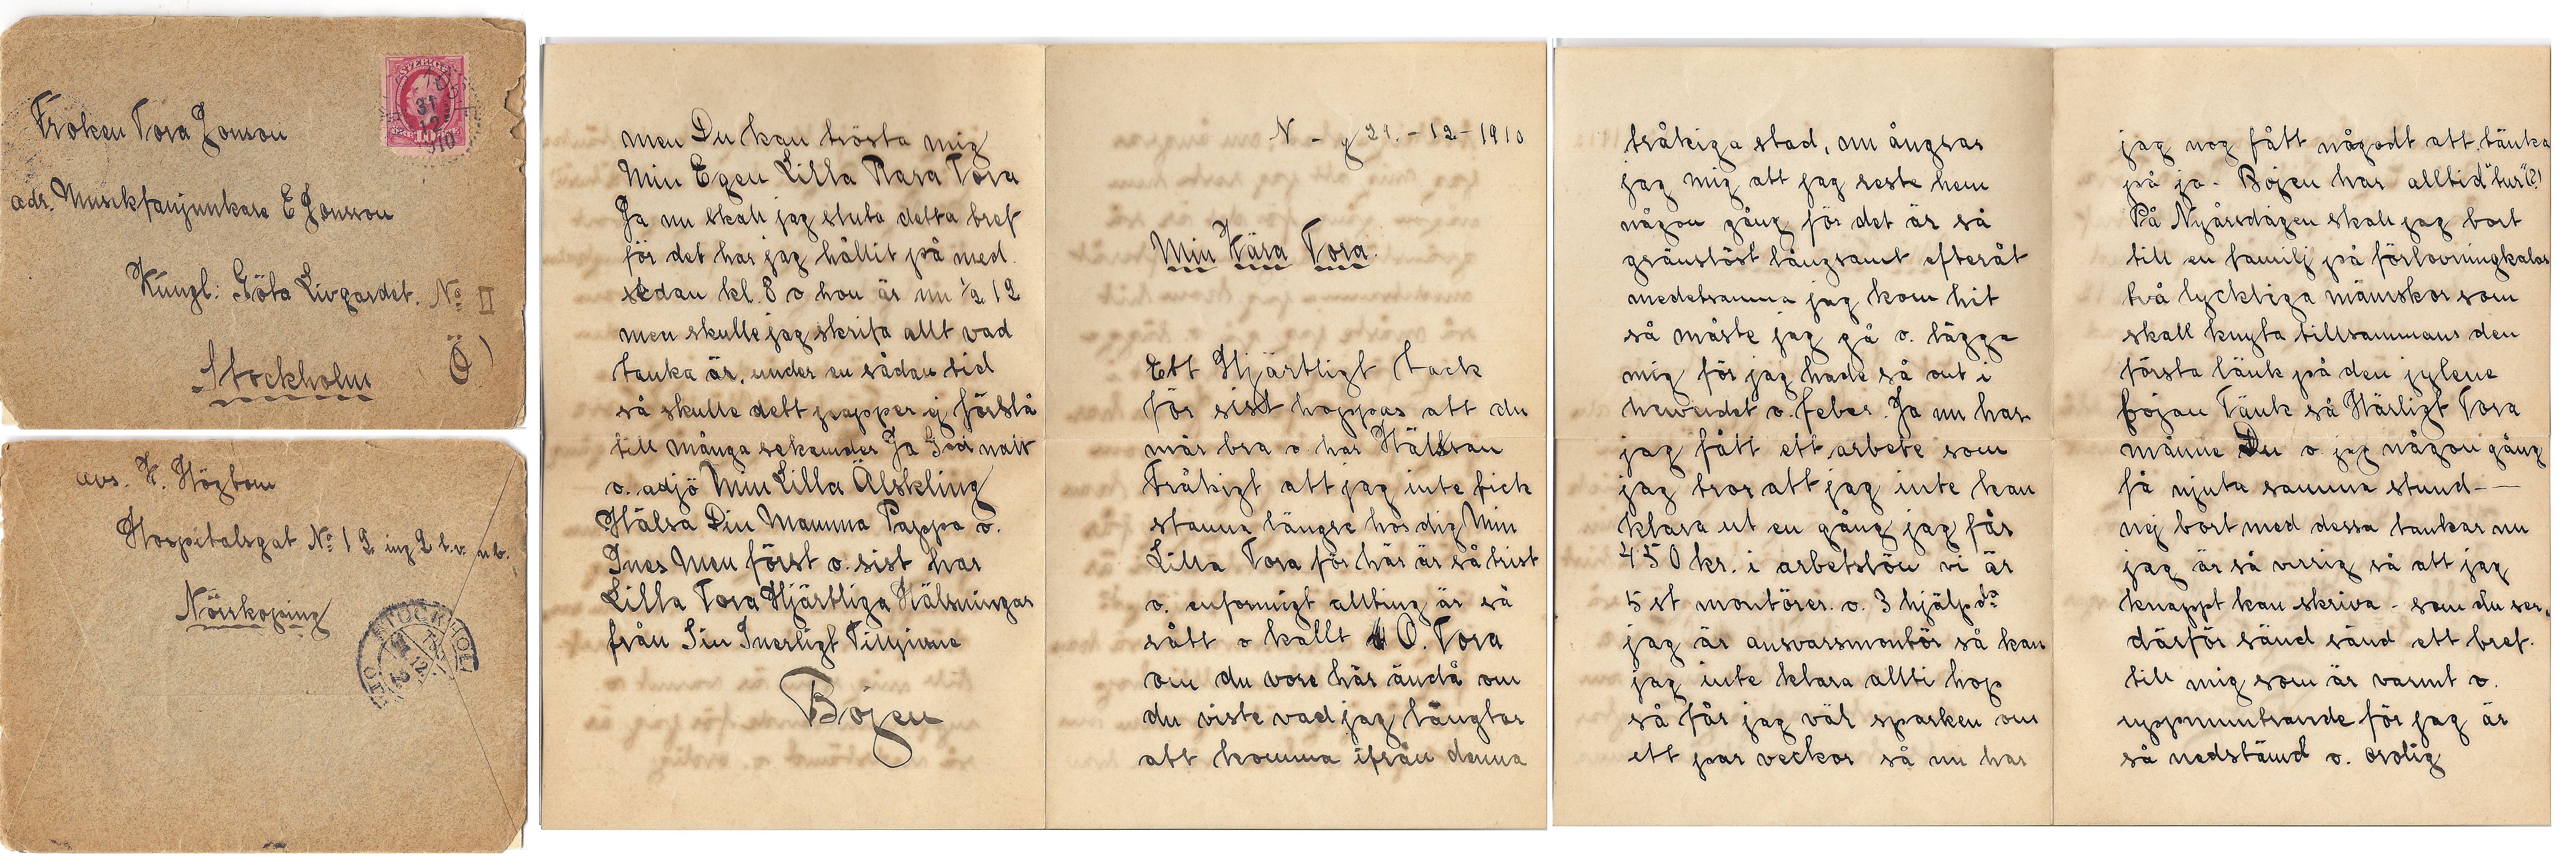 Fröken Tora Jonson
adr. Musikfanjunkare E Jonsson
Kungl: Göta Livgardet. No II
Stockholm Ö)
SVERIGE
31
12
10
10
avs. K. Högbom
Hospitalsgat No 12 ing 2 t.v. n.b.
Norrkoping
STOCKHOLM
N - g 29. - 12 - 1910
Min Kära Tora.
Ett Hjärtligt tack
för sist hoppas att du
mår bra o har Hälsan
Tråkigt att jag inte fick
stanna längre hos dig Min
Lilla Tora för här är så trist
o. enformigt allting är så
rått o kallt O. Tora
om du vore här ändå om
du viste vad jag längtar
att komma ifrån denna
tråkiga stad, nu ångrar
jag mig att jag reste hem
någon gång för det är så
gränslöst långsamt efteråt
medetsamma jag kom hit
så måste jag gå o. lägga
mig för jag hade så ont i
huvudet o. feber. Ja nu har
jag fått ett arbete som
jag tror att jag inte kan
klara ut en gång jag får
450 kr. i arbetslön vi är
5 st montörer. o. 3 hjälp do
jag är ansvarsmontör så kan
jag inte klara allti hop
så får jag väl sparken om
ett par veckor så nu har
jag nog fått någodt att tänka
på ja - Bojen har alltid "tur"(?)
På Nyårsdagen skall jag bort
till en familj på förlovningkalas
två lyckliga mänskor som
skall knyta tillsammans den
första länk på den gylene
bojan Tänk så Härligt Tora
månne Du o jag någon gång
få njuta samma stund -
nej bort med dessa tankar nu
jag är så virrig så att jag
knappt kan skriva - som du ser,
därför sänd sänd ett bref.
till mig som är varmt o.
uppmuntrande för jag är
så nedstämd o. orolig
men Du kan trösta mig
Min Egen Lilla Rara Tora
Ja nu skall jag sluta detta bref
för det har jag hållit på med.
sedan kl. 8 o hon är nu 1/2 12
men skulle jag skrifa allt vad
tanka är, under en sådan tid
så skulle dett papper ej förslå
till många sekunder Ja God natt
o. adjö Min Lilla Älskling
Hälsa Din Mamma Pappa o.
Ines Men först o. sist har
Lilla Tora Hjärtliga Hälsningar
från Din Inerligt Tillgivne
Bojen